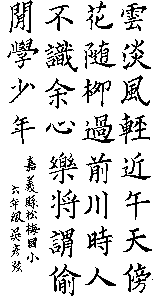 雲淡風輕近午天傍
花随柳過前川時人
不識余心樂將謂偷
閒學少年
嘉義縣松梅國小
六年級吳彥